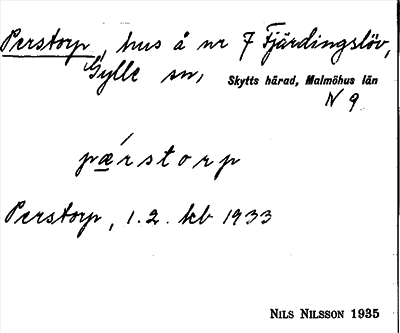 Perstorp, hus å nr 7 Fjärdingslöv,
Gylle sn, Skytts härad, Malmöhus län
N 9
pærstorp
Perstorp, 1.2. kb 1933
NILS NILSSON 1935